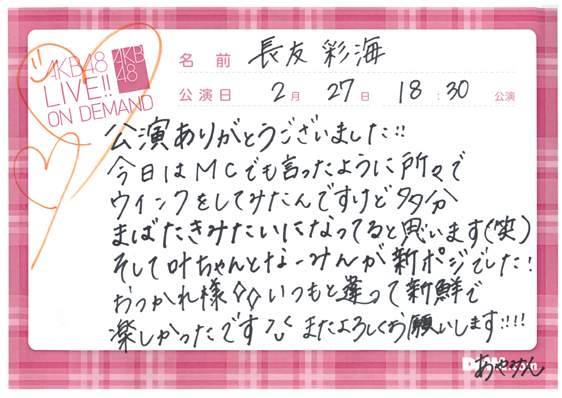 AKB48
LIVE!!
ON DEMAND
AKB
48
名前 長友 彩海
公演日 2月 27日 18:30 公演
公演ありがとうございました!!
今日はMCでも言ったように所々で
ウィンクをしてみたんですけど多分
まばたきみたいになってると思います(笑)
そして叶ちゃんとなーみんが新ポジでした!
おつかれ様◇◇いつもと違って新鮮で
楽しかったです またよろしくお願いします!!!!
.com
あやみん